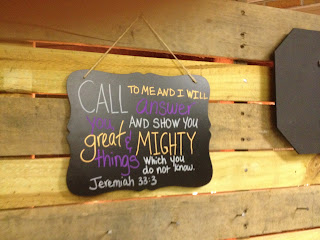 CALL TO ME AND I WILL
answer
you AND SHOW YOU
great & MIGHTY
things which you
do not know.
Jeremiah 33:3